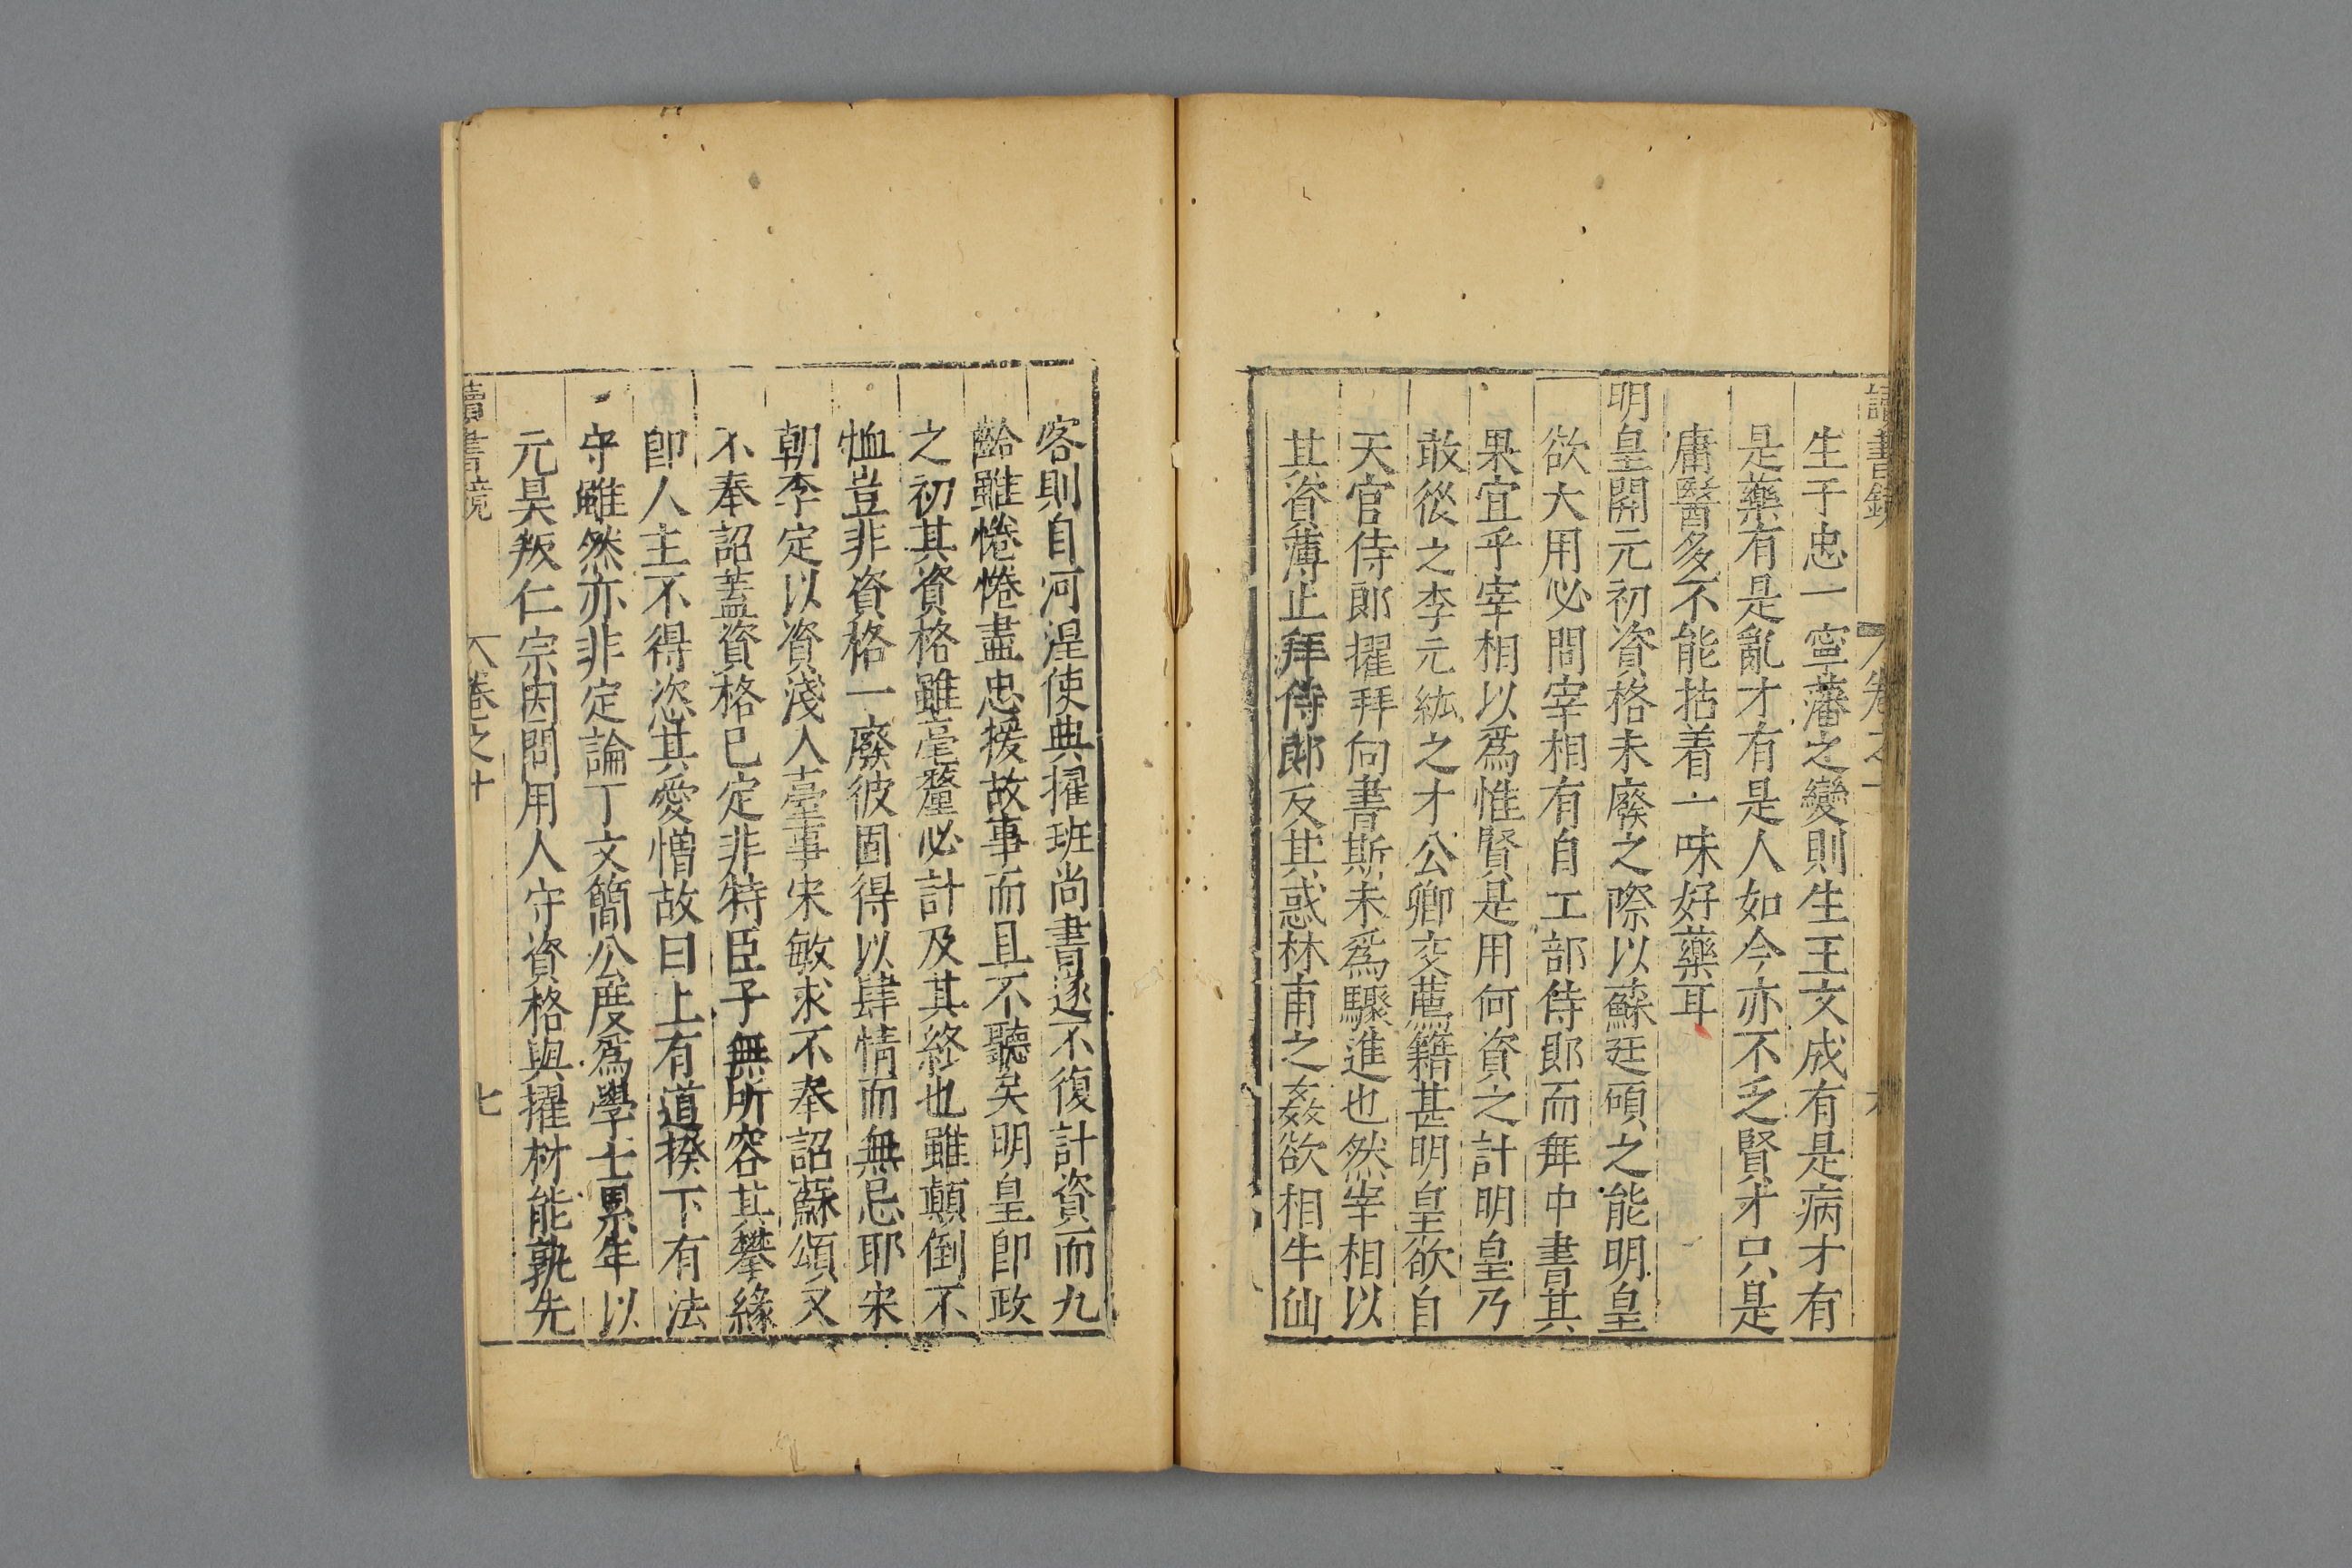 讀書鏡 卷之十 六
生于忠一寧藩之變則生王文成有是病才有
是藥有是亂才有是人如今亦不乏賢才只是
庸醫多不能拈着一味好藥耳
明皇開元初資格未廢之際以蘇廷碩之能明皇
欲大用必問宰相有自工部侍郎而拜中書其
果宜乎宰相以爲惟賢是用何資之計明皇乃
敢從之李元紘之才公卿交薦籍甚明皇欲自
天官侍郎擢拜尚書斯未爲驟進也然宰相以
其資薄止拜侍郎反其惑林甫之姦欲相牛仙
客則自河湟使典擢班尚書遂不復計資而九
齡雖惓惓盡忠援故事而且不聽矣明皇卽政
之初其資格雖毫釐必計及其終也雖顛倒不
恤豈非資格一廢彼固得以肆情而無忌耶宋
朝李定以資淺入臺事宋敏求不奉詔蘇頌又
不奉詔蓋資格已定非特臣子無所容其攀緣
卽人主不得恣其愛憎故曰上有道揆下有法
守雖然亦非定論丁文簡公度爲學士累年以
元昊叛仁宗因問用人守資格與擢材能孰先
讀書鏡 卷之十 七